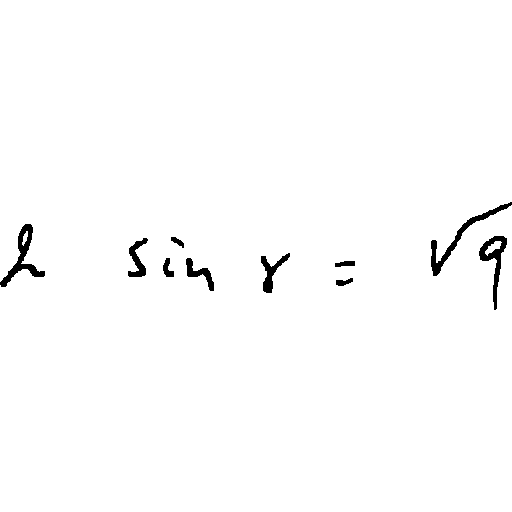 h sin γ = √9